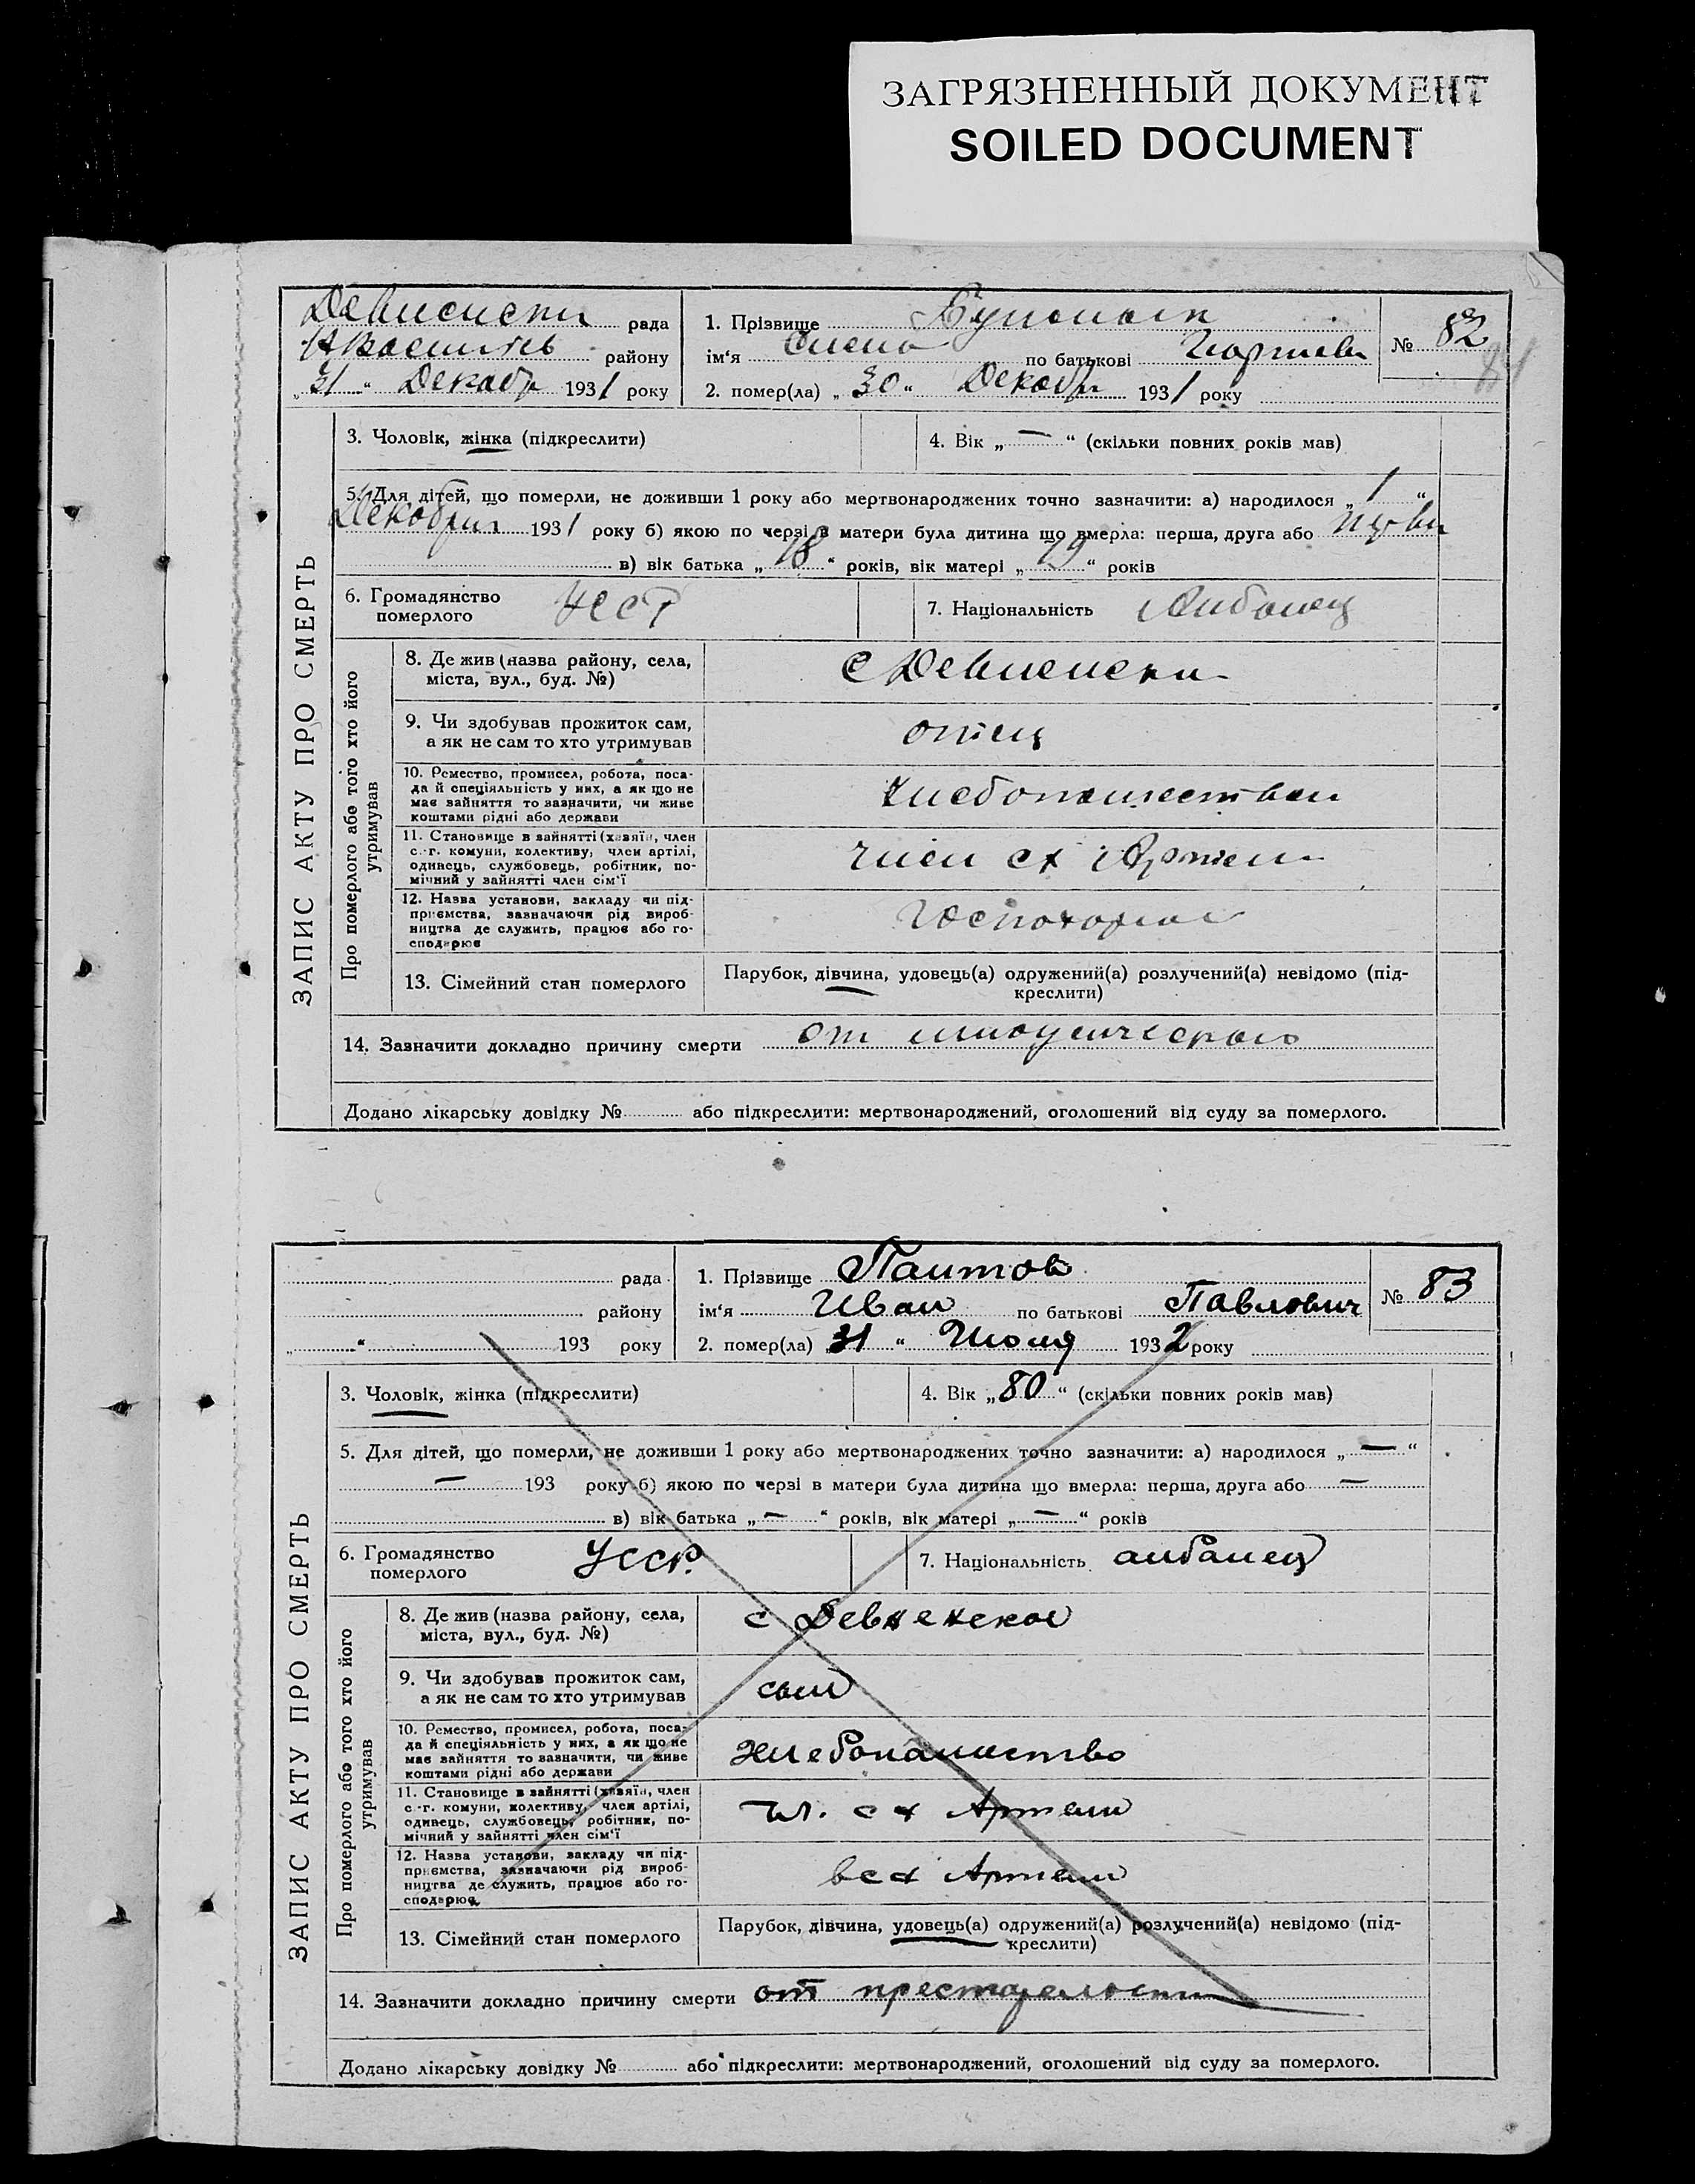 ЗАГРЯЗНЕННЫЙ ДОКУМЕНТ
SOILED DOCUMENT
рада
району
„31“ Декабр 1931 року
1. Прізвище
ім'я по батькові
№ 82
84
2. помер(ла) „30“ Декабр 1931 року
ЗАПИС АКТУ ПРО СМЕРТЬ
3. Чоловік, жінка (підкреслити)
4. Вік „—“ (скільки повних років мав)
5. Для дітей, що померли, не доживши 1 року або мертвонароджених точно зазначити: а) народилося „1“
Декабрия 1931 року б) якою по черзі в матери була дитина що вмерла: перша, друга або перви
в) вік батька „18“ років, вік матері „19“ років
6. Громадянство
померлого
УССР
7. Національність Албанец
Про померлого або того хто його
утримував
8. Де жив (назва району, села,
міста, вул., буд. №)
с
9. Чи здобував прожиток сам,
а як не сам то хто утримував
отец
10. Ремество, промисел, робота, поса-
да й спеціяльність у них, а як що не
має зайняття то зазначити, чи живе
коштами рідні або держави
11. Становище в зайнятті (хазяїн, член
с.-г. комуни, колективу, член артілі,
одинець, службовець, робітник, по-
мічний у зайнятті член сім'ї
член сх Артели
12. Назва установи, закладу чи під-
приємства, зазначаючи рід вироб-
ництва де служить, працює або го-
сподарює
13. Сімейний стан померлого
Парубок, дівчина, удовець(а) одружений(а) розлучений(а) невідомо (під-
креслити)
14. Зазначити докладно причину смерти от
Додано лікарську довідку № або підкреслити: мертвонароджений, оголошений від суду за померлого.
рада
району
„ “ 193 року
1. Прізвище
ім'я Иван по батькові Павлович
№ 83
2. помер(ла) „31“ Июля 1932 року
ЗАПИС АКТУ ПРО СМЕРТЬ
3. Чоловік, жінка (підкреслити)
4. Вік „80“ (скільки повних років мав)
5. Для дітей, що померли, не доживши 1 року або мертвонароджених точно зазначити: а) народилося „—“
— 193 року б) якою по черзі в матери була дитина що вмерла: перша, друга або —
в) вік батька „—“ років, вік матері „—“ років
6. Громадянство
померлого
УССР.
7. Національність албанец
Про померлого або того хто його
утримував
8. Де жив (назва району, села,
міста, вул., буд. №)
с
9. Чи здобував прожиток сам,
а як не сам то хто утримував
10. Ремество, промисел, робота, поса-
да й спеціяльність у них, а як що не
має зайняття то зазначити, чи живе
коштами рідні або держави
хлебопашество
11. Становище в зайнятті (хазяїн, член
с.-г. комуни, колективу, член артілі,
одинець, службовець, робітник, по-
мічний у зайнятті член сім'ї
чл. сх Артели
12. Назва установи, закладу чи під-
приємства, зазначаючи рід вироб-
ництва де служить, працює або го-
сподарює
всх Артели
13. Сімейний стан померлого
Парубок, дівчина, удовець(а) одружений(а) розлучений(а) невідомо (під-
креслити)
14. Зазначити докладно причину смерти от престарелости
Додано лікарську довідку № або підкреслити: мертвонароджений, оголошений від суду за померлого.